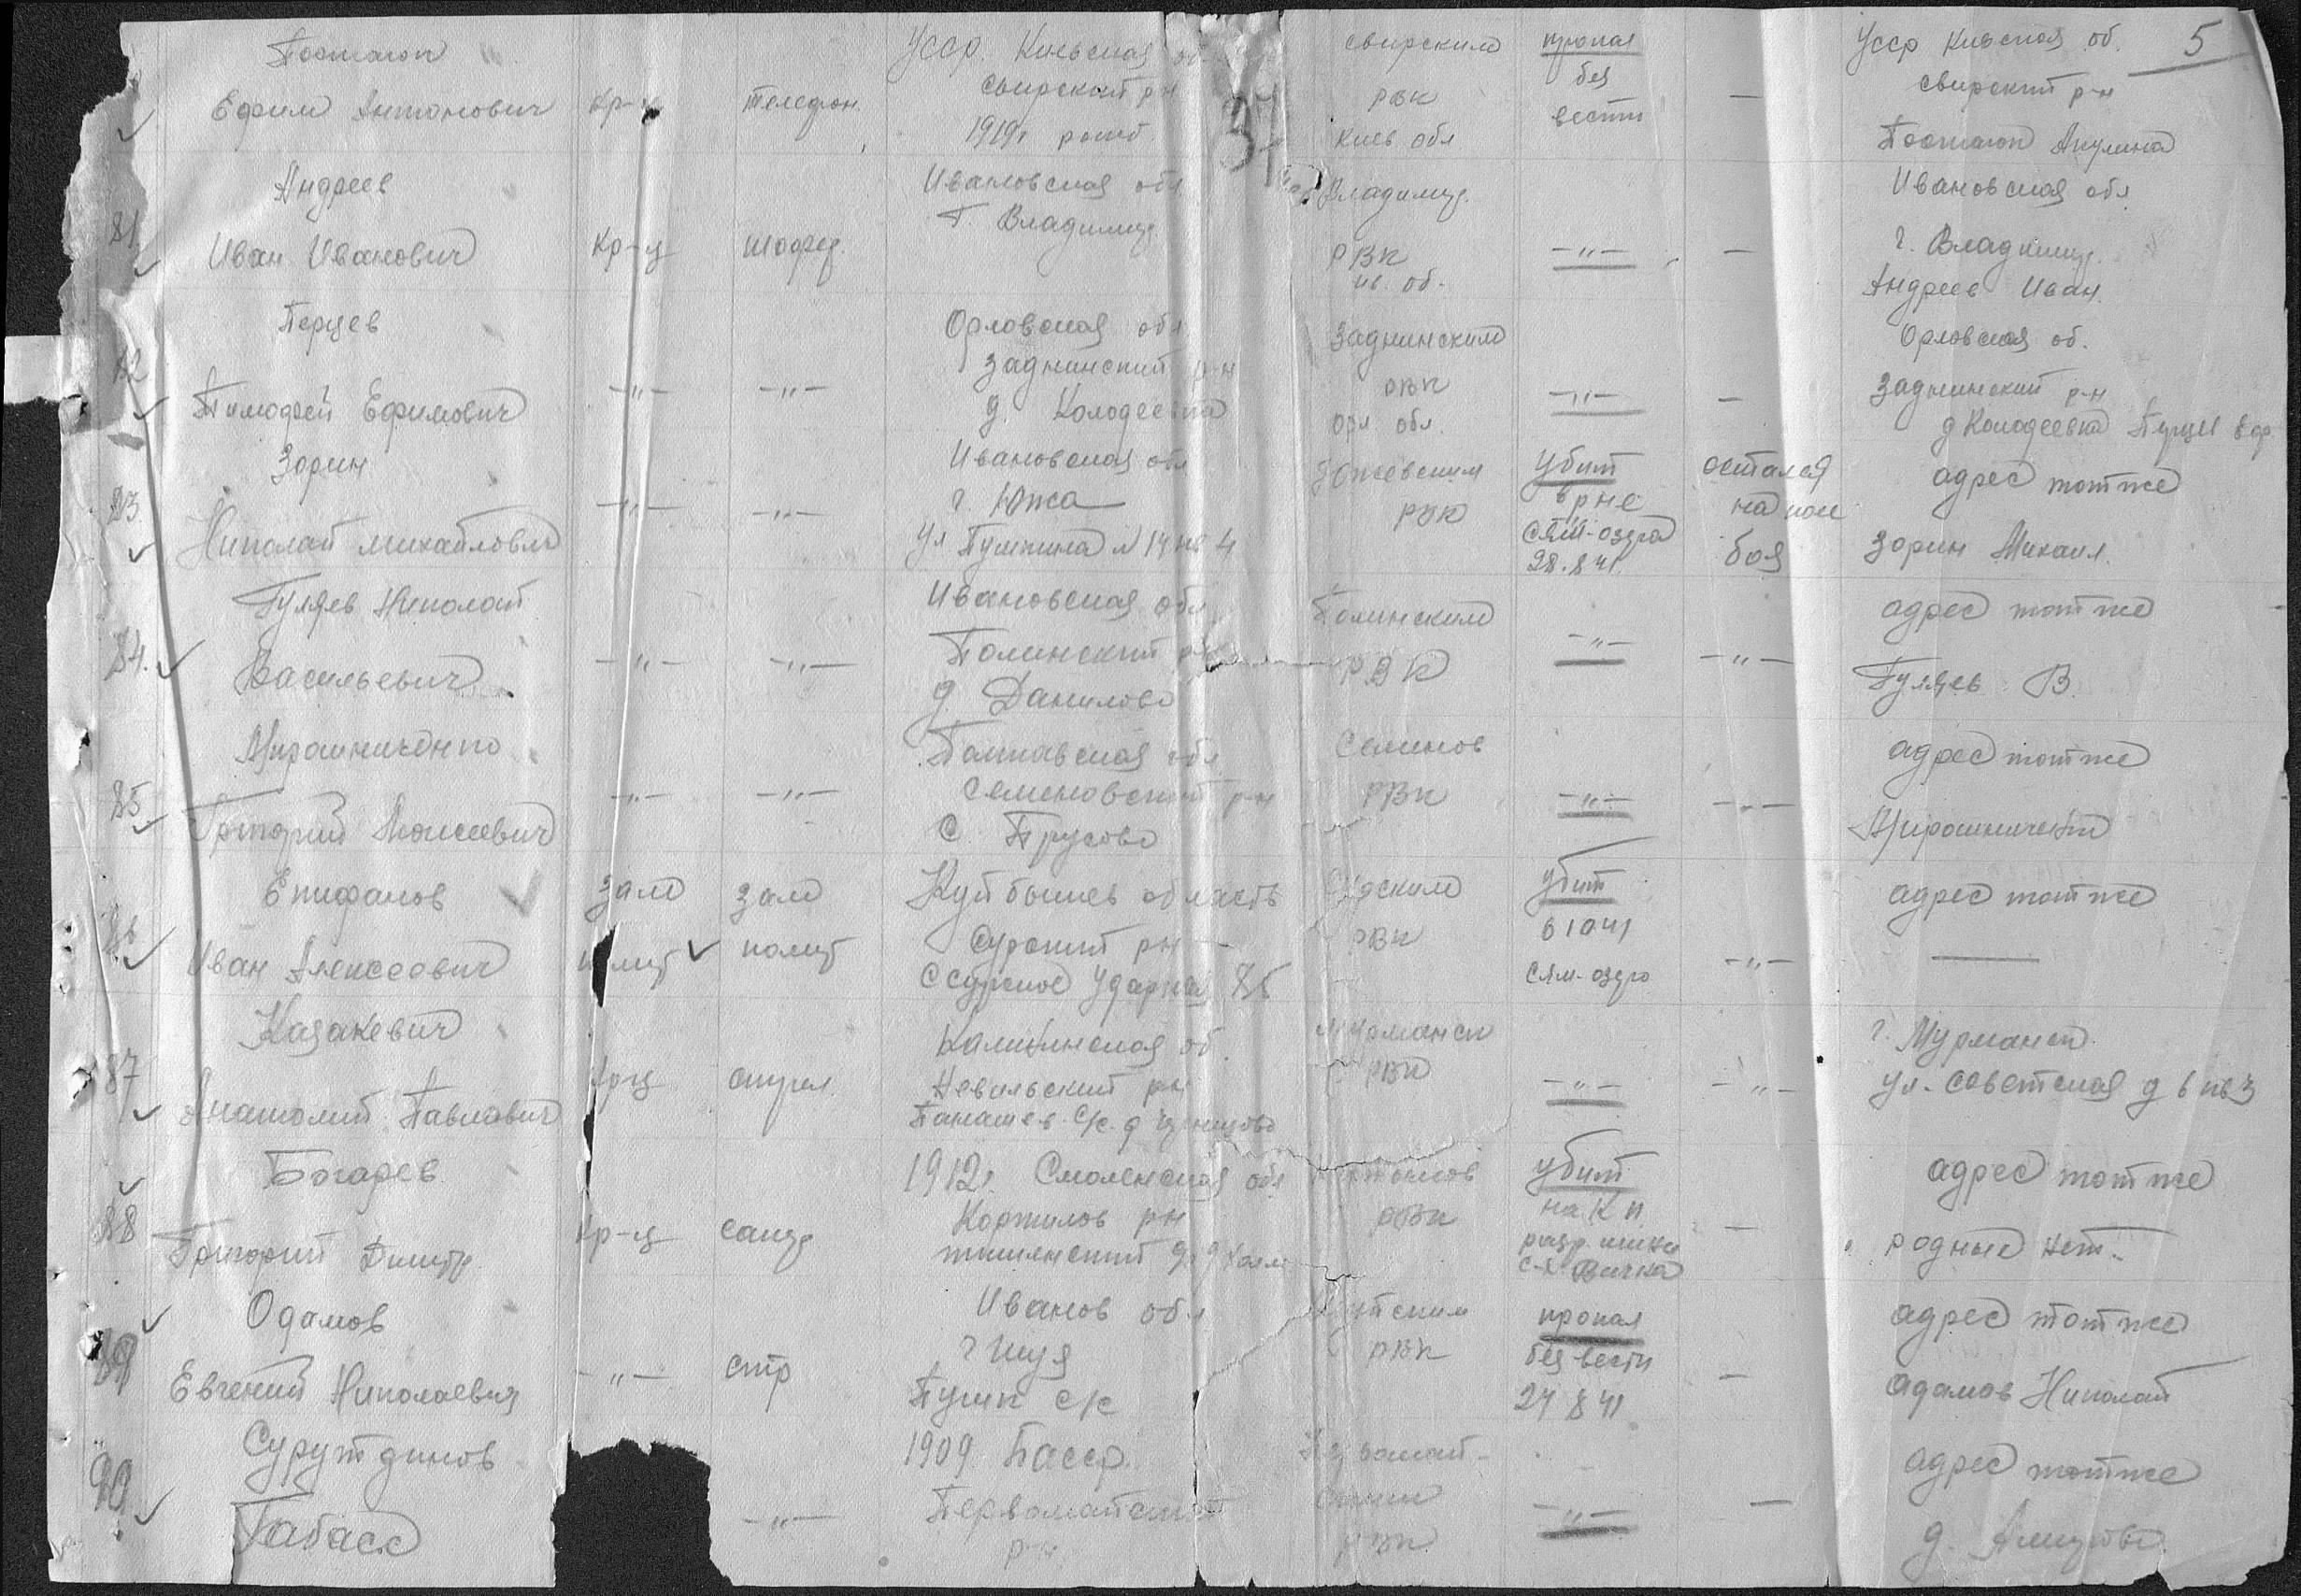 5
Постаюк
Ефим Антонович
кр-ц
телефон.
Усср. Киевская об.
свирский р-н
1919г рожд.
свирским
РВК
Киев обл
пропал
без
вести
—
Усср Киевская об.
свирский р-н
Постаюк Акулина
81.
Андреев
Иван Иванович
кр-ц
шофер.
Ивановская обл
г. Владимир
Владимир.
РВК
ив. об.
—„—
—
Ивановская обл
г. Владимир.
Андреев Иван.
82
Перцев
Тимофей Ефимович
—„—
—„—
Орловская обл
Заднинский р-н
д. Колодеевка
Заднинским
РВК
орл. обл.
—„—
—
Орловская об.
Заднинский р-н
д Колодеевка Перцев Еф.
83.
Зорин
Николай михайлович
—„—
—„—
Ивановская обл
г Южа
ул Пушкина N 14 кв 4
Южевским
РВК
убит
в р-не
Сям-озера
28.8 41.
остался
на поле
боя
адрес тот же
Зорин Михаил.
84.
Гуляев Николай
Васильевич
—„—
—„—
Ивановская обл
д Данилово
РВК
—„—
—„—
адрес тот же
Гуляев В.
85.
Мирошниченко
Григорий Моисеевич
—„—
—„—
Полтавская обл
Семеновский р-н
с. Трусово
Семинов
РВК
—„—
—„—
адрес тот же
Мирошничен
86
Епифанов
Иван Алексеевич
зам
полит
зам
полит
Куйбышев область
Сурский рн
с сурское Ударная 86
РВК
убит
6 10 41
Сям-озеро
—„—
адрес тот же
—
87
Казакевич
Анатолий Павлович
кр-ц
стрел.
Калининская об.
Невельский рн
Мурманск
РВК
—„—
—„—
г. Мурманск.
ул. советская д 6 кв 3
88
Богарев
Григорий Дмитр.
кр-ц
санир
1912г. Смоленская обл
РВК
убит
на КП
—
адрес тот же
родных нет.
89
Одамов
Евгений Николаевич
—„—
стр
Иванов обл
г Шуя
Пушк с/с
РВК
пропал
без вести
27 8 41
—
адрес тот же
адамов Николай
90
Сурутдинов
Габасс
—„—
1909. Басср.
Первомайский
р-н
РВК
—„—
—
адрес тот же